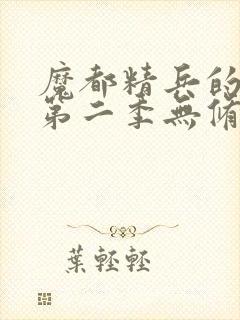 魔都精兵的
第二季無脩
葉輕輕